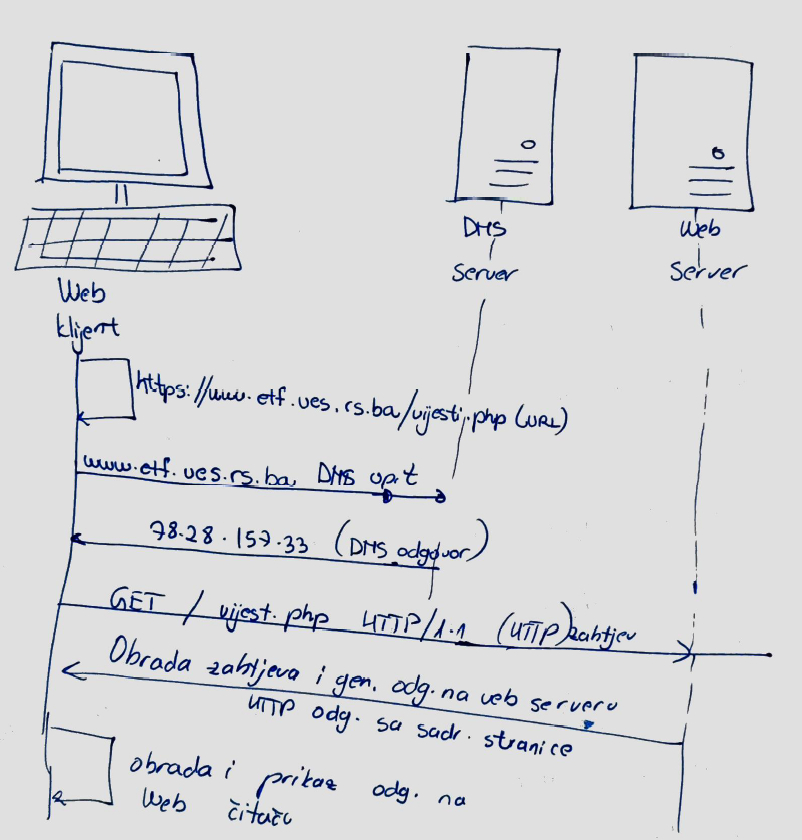 DNS
Server
Web
Server
Web
klijent
https://www.etf.ues.rs.ba/vijesti.php (URL)
www.etf.ues.rs.ba DNS upit
78.28.157.33 (DNS odgovor)
GET / vijest.php HTTP/1.1 (HTTP) zahtjev
Obrada zahtjeva i gen. odg. na veb serveru
HTTP odg. sa sadr. stranice
obrada i prikaz odg. na
Web čitaču